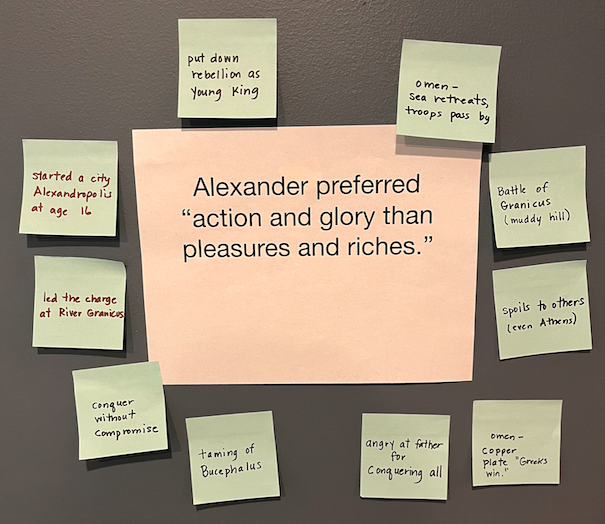 put down
rebellion as
young king
omen -
sea retreats,
troops pass by
started a city
Alexandropolis
at age 16
Alexander preferred
“action and glory than
pleasures and riches.”
Battle of
Granicus
(muddy hill)
led the charge
at River Granicus
spoils to others
(even Athens)
Conquer
without
Compromise
taming of
Bucephalus
angry at father
for
Conquering all
omen -
copper
plate "Greeks
win."